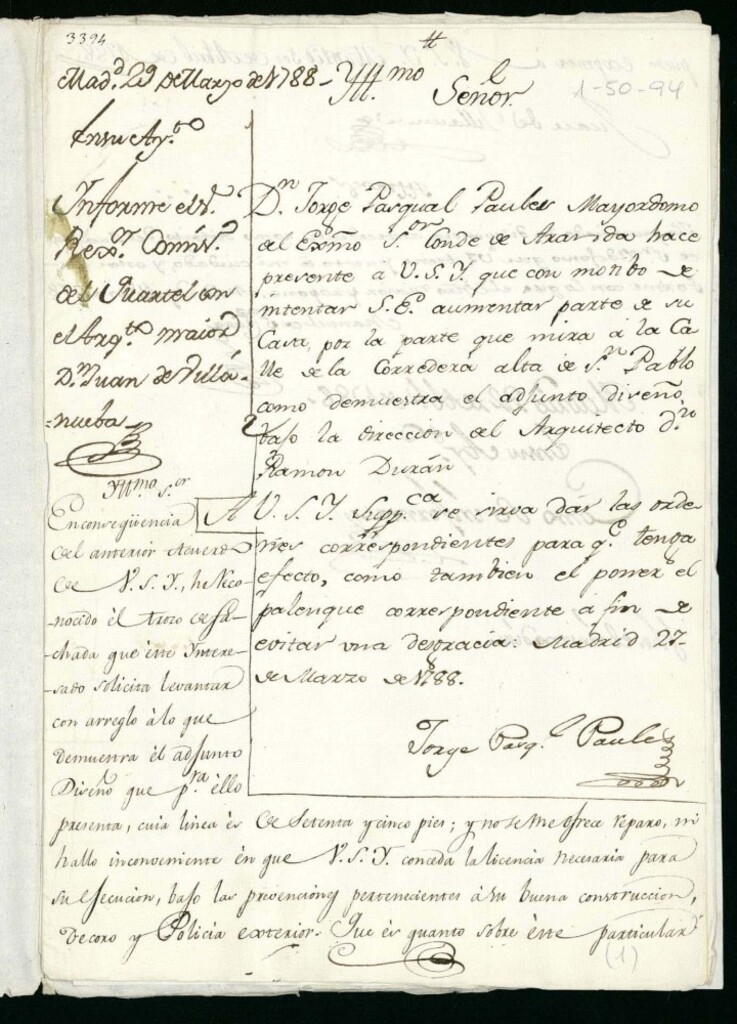 3394
Mad.d 29 de Marzo de 1788 -
Yltt.mo Señor.
1-50-94
En su Ay.to
Informe el S.r
Rex.or Comis.o
del Quartel con
el Arq.to maior
D.n Juan de Villa-
-nueba
D.n Jorge Pasqual Paules Mayordomo
del Exmõ S.or Conde de Aranda hace
presente à V.S.Y. que con motibo de
intentar S.E. aumentar parte de su
Casa, por la parte que mira à la Ca
lle de la Corredera alta de S.n Pablo
como demuestra el adjunto diseño,
bajo la direccion del Arquitecto d.n
Ramon Durán
A V.S.Y. Supp.ca se sirva dár las orde
nes correspondientes para q.e tenga
efecto, como tambien el poner el
palenque correspondiente à fin de
evitar una desgracia: Madrid 27
de Marzo de 1788.
Jorge Pasq.l Paules
Yltt.mo S.or
En conseqüencia
del anterior Acuerdo
de V.S.Y., he reco
-nocido èl trozo de fa-
-chada que èste Yntere-
-sado solicita levantar
con arreglo à lo que
demuestra èl adjunto
Diseño que p.ra èllo
presenta, cuia linea ès de Setenta y cinco pies; y no se me ofrece reparo, ni
hallo inconveniente èn que V.S.Y. conceda la licencia necesaria para
su ejecucion, bajo las prevenciones pertenecientes à su buena construccion,
decoro y Policia exterior. Que ès quanto sobre èste particular
(1)